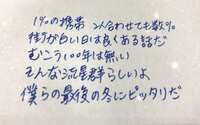 1%の携帯 2人合わせても数%
持ちが白い日は良くある話だ
むこう100年は無い
そんな流星群らしいよ
僕らの最後の冬にピッタリだ